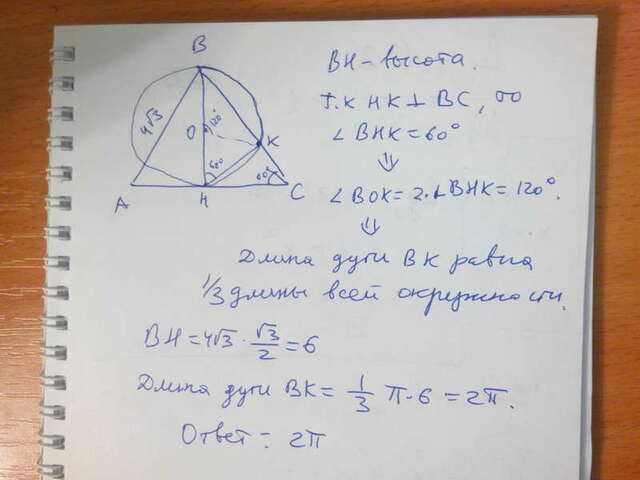 B
4√3
O
120°
K
60°
60°
A
H
C
BH - высота.
Т.к HK ⊥ BC, то
∠BHK = 60°
⇓
∠BOK = 2·∠BHK = 120°.
⇓
Длина дуги BK равна
1/3 длины всей окружности.
BH = 4√3 · √3/2 = 6
Длина дуги BK = 1/3 π·6 = 2π.
Ответ: 2π